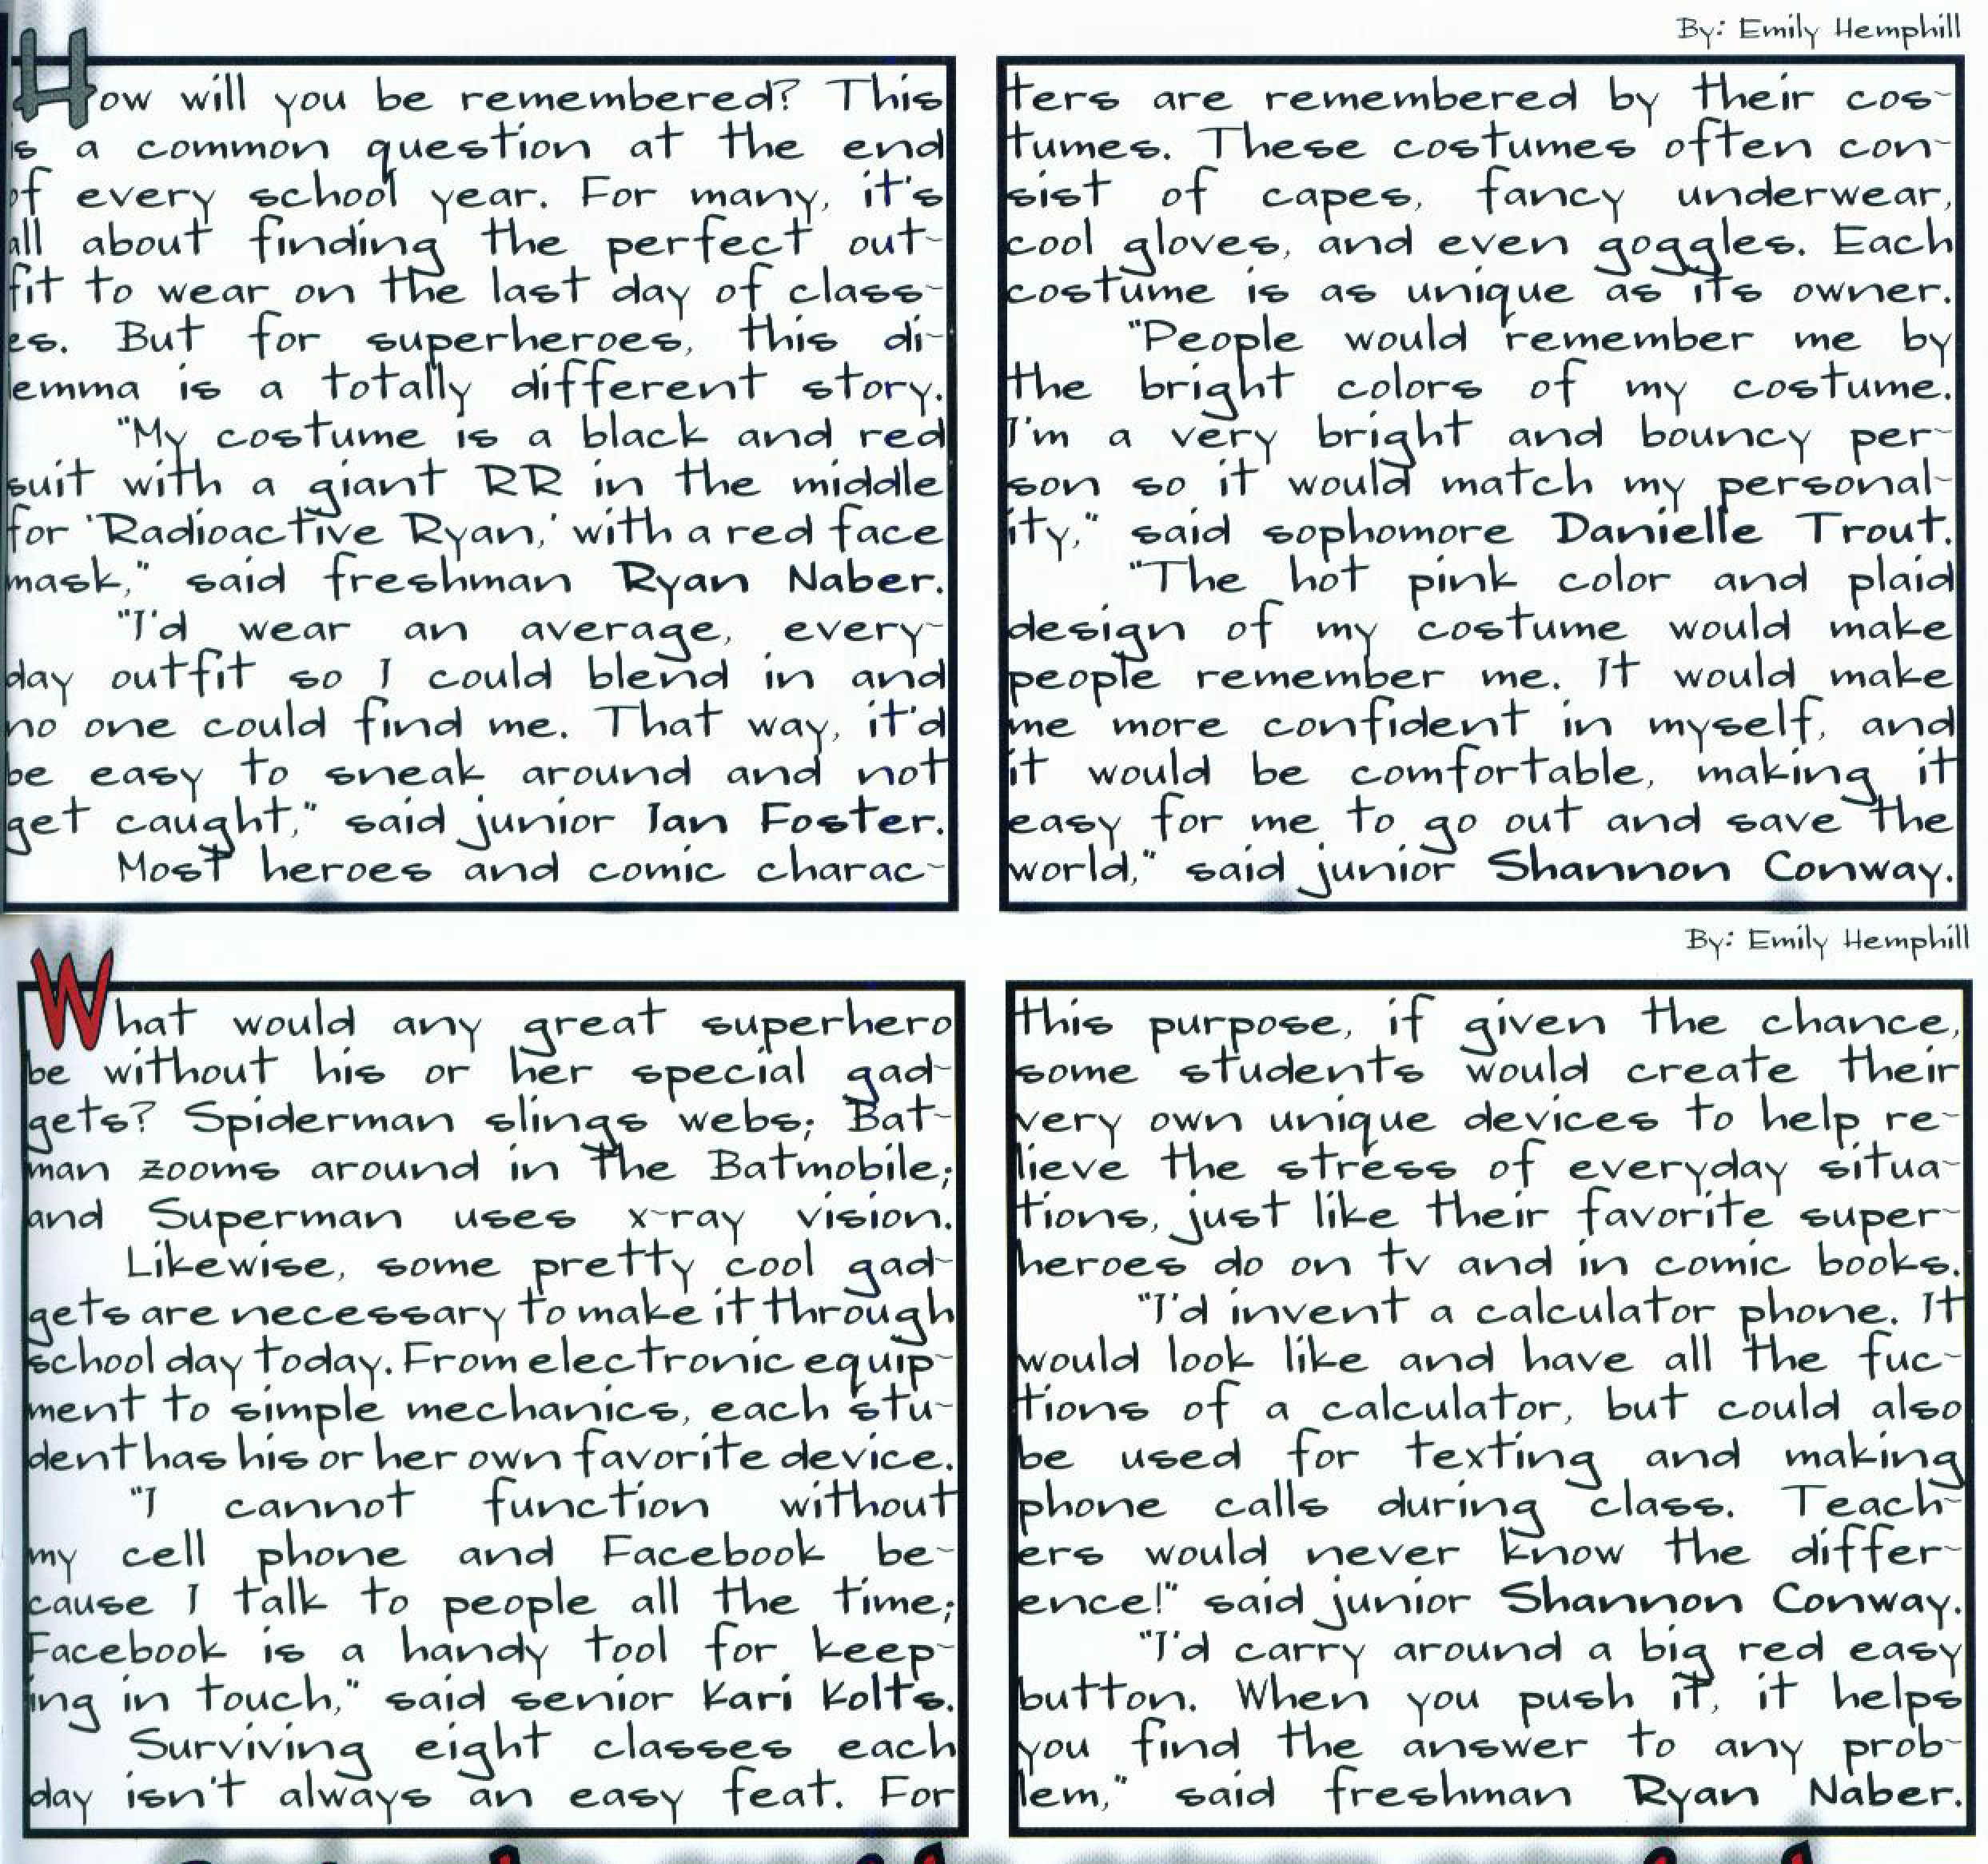 By: Emily Hemphill
How will you be remembered? This
is a common question at the end
of every school year. For many, it's
all about finding the perfect out-
fit to wear on the last day of class-
es. But for superheroes, this di-
lemma is a totally different story.
"My costume is a black and red
suit with a giant RR in the middle
for 'Radioactive Ryan,' with a red face
mask," said freshman Ryan Naber.
"I'd wear an average, every-
day outfit so I could blend in and
no one could find me. That way, it'd
be easy to sneak around and not
get caught," said junior Ian Foster.
Most heroes and comic charac-
ters are remembered by their cos-
tumes. These costumes often con-
sist of capes, fancy underwear,
cool gloves, and even goggles. Each
costume is as unique as its owner.
"People would remember me by
the bright colors of my costume.
I'm a very bright and bouncy per-
son so it would match my personal-
ity," said sophomore Danielle Trout.
"The hot pink color and plaid
design of my costume would make
people remember me. It would make
me more confident in myself, and
it would be comfortable, making it
easy for me to go out and save the
world," said junior Shannon Conway.
By: Emily Hemphill
What would any great superhero
be without his or her special gad-
gets? Spiderman slings webs; Bat-
man zooms around in the Batmobile;
and Superman uses x-ray vision.
Likewise, some pretty cool gad-
gets are necessary to make it through
school day today. From electronic equip-
ment to simple mechanics, each stu-
dent has his or her own favorite device.
"I cannot function without
my cell phone and Facebook be-
cause I talk to people all the time;
Facebook is a handy tool for keep-
ing in touch," said senior Kari Kolts.
Surviving eight classes each
day isn't always an easy feat. For
this purpose, if given the chance,
some students would create their
very own unique devices to help re-
lieve the stress of everyday situa-
tions, just like their favorite super-
heroes do on tv and in comic books.
"I'd invent a calculator phone. It
would look like and have all the fuc-
tions of a calculator, but could also
be used for texting and making
phone calls during class. Teach-
ers would never know the differ-
ence!" said junior Shannon Conway.
"I'd carry around a big red easy
button. When you push it, it helps
you find the answer to any prob-
lem," said freshman Ryan Naber.